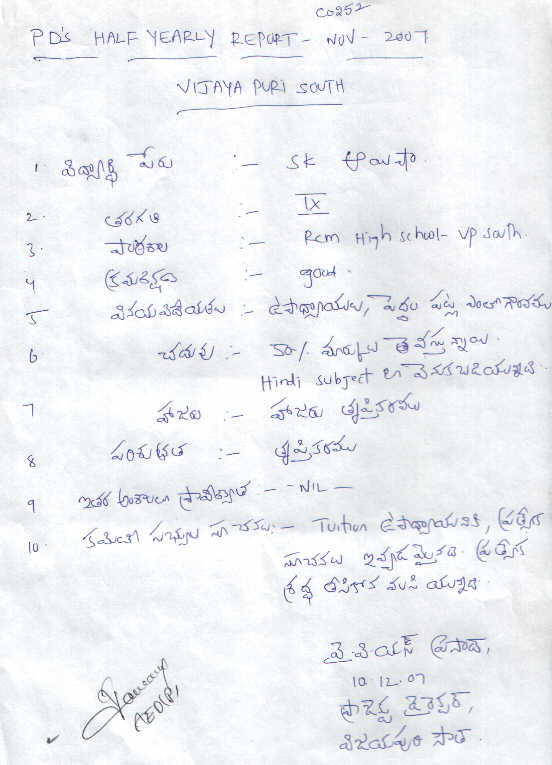 C0252
PD's HALF YEARLY REPORT - NOV - 2007
VIJAYA PURI SOUTH
1 విద్యార్థి పేరు :- SK ఆయిషా.
2. తరగతి :- IX
3. పాఠశాల :- Rcm High school - VP South.
4 క్రమశిక్షణ :- good.
5 వినయవిధేయతలు :- ఉపాధ్యాయులు, పెద్దల పట్ల చాలా గౌరవము
6 చదువు :- 50% మార్కులు తెస్తున్నాయి.
Hindi subject లో వెనుకబడియున్నది.
7 హాజరు :- హాజరు తృప్తికరము
8 పరిశుభ్రత :- తృప్తికరము
9 ఇతర అంశాలలో ప్రావీణ్యత :- - NIL -
10. కమిటీ సభ్యుల సూచనలు :- Tuition ఉపాధ్యాయునికి, ప్రత్యేక
సూచనలు ఇవ్వడమైనది. ప్రత్యేక
శ్రద్ధ తీసికోన వలసి యున్నది.
వై.పి.యస్ ప్రసాద్,
10.12.07
ప్రాజెక్టు డైరెక్టర్,
విజయపురి సౌత్.
AEO(P)